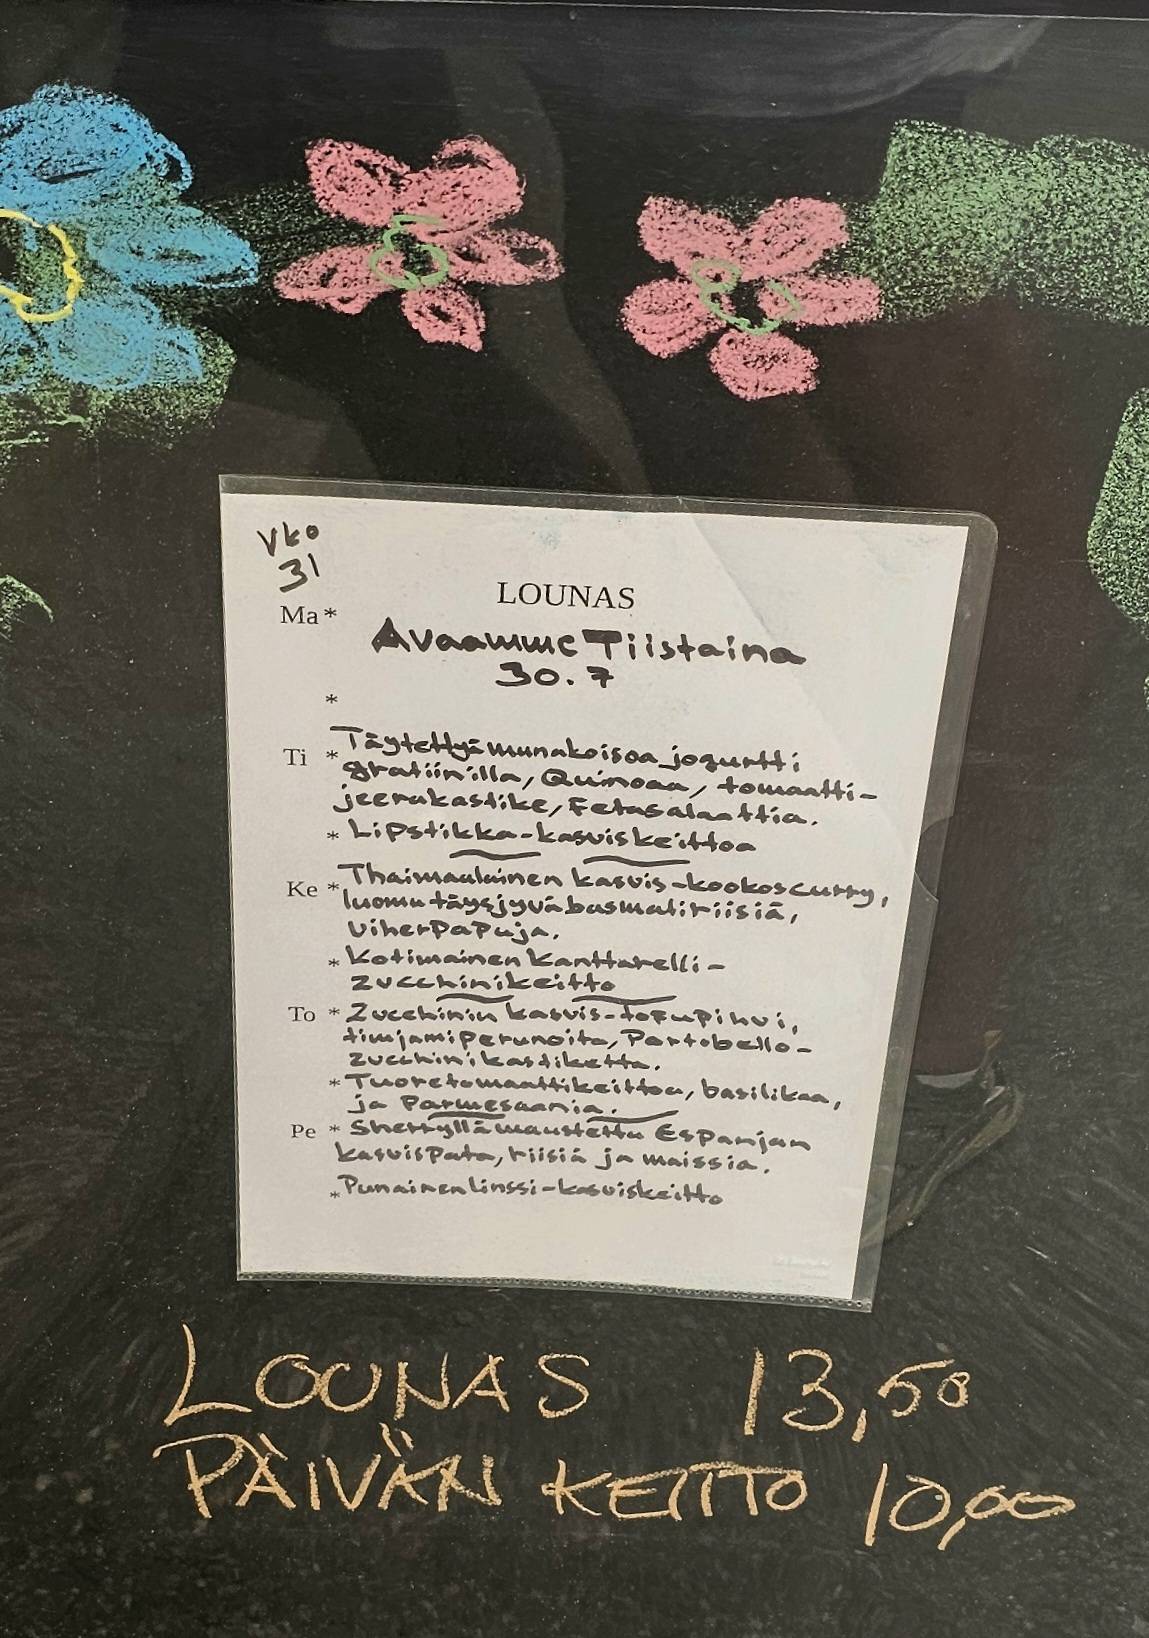 Vko
31
LOUNAS
Ma *
Avaamme Tiistaina
30.7
*
Ti * Täytettyä munakoisoa jogurtti
gratiinilla, Quinoaa, tomaatti-
jeerakastike, Fetasalaattia.
* Lipstikka-kasviskeittoa
Ke * Thaimaalainen kasvis-kookoscurry,
luomu täysjyvä basmatiriisiä,
Viherpapuja.
* Kotimainen kanttarelli-
zucchinikeitto
To * Zucchinin kasvis-tofupihvi,
timjamiperunoita, Portobello-
zucchinikastiketta.
* Tuoretomaattikeittoa, basilikaa,
ja Parmesaania.
Pe * Sherryllä maustettu Espanjan
kasvispata, riisiä ja maissia.
* Punainenlinssi-kasviskeitto
LOUNAS 13,50
PÄIVÄN KEITTO 10,00